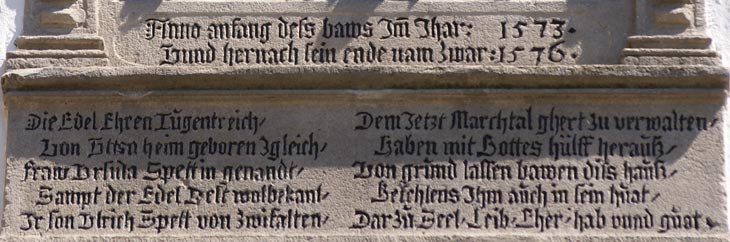 Anno anfang dess baws Im Jhar: 1573.
Vnnd hernach sein ende nam zwar: 1576.
Die Edel Ehren Tugentreich,
Von geboren zgleich,
Fraw Vrsula Spett in genandt,
Sampt der Edel Vest wolbekant,
Ir son Vlrich Spett von Zwifalten,
Dem Jetzt Marchtal ghert zu verwalten,
Haben mit Gottes hülff herauß,
Von grund lassen bawen diss hauß,
Befehlens Ihm auch in sein huat,
Dar zu Seel, Leib, Eher, hab vund guat,